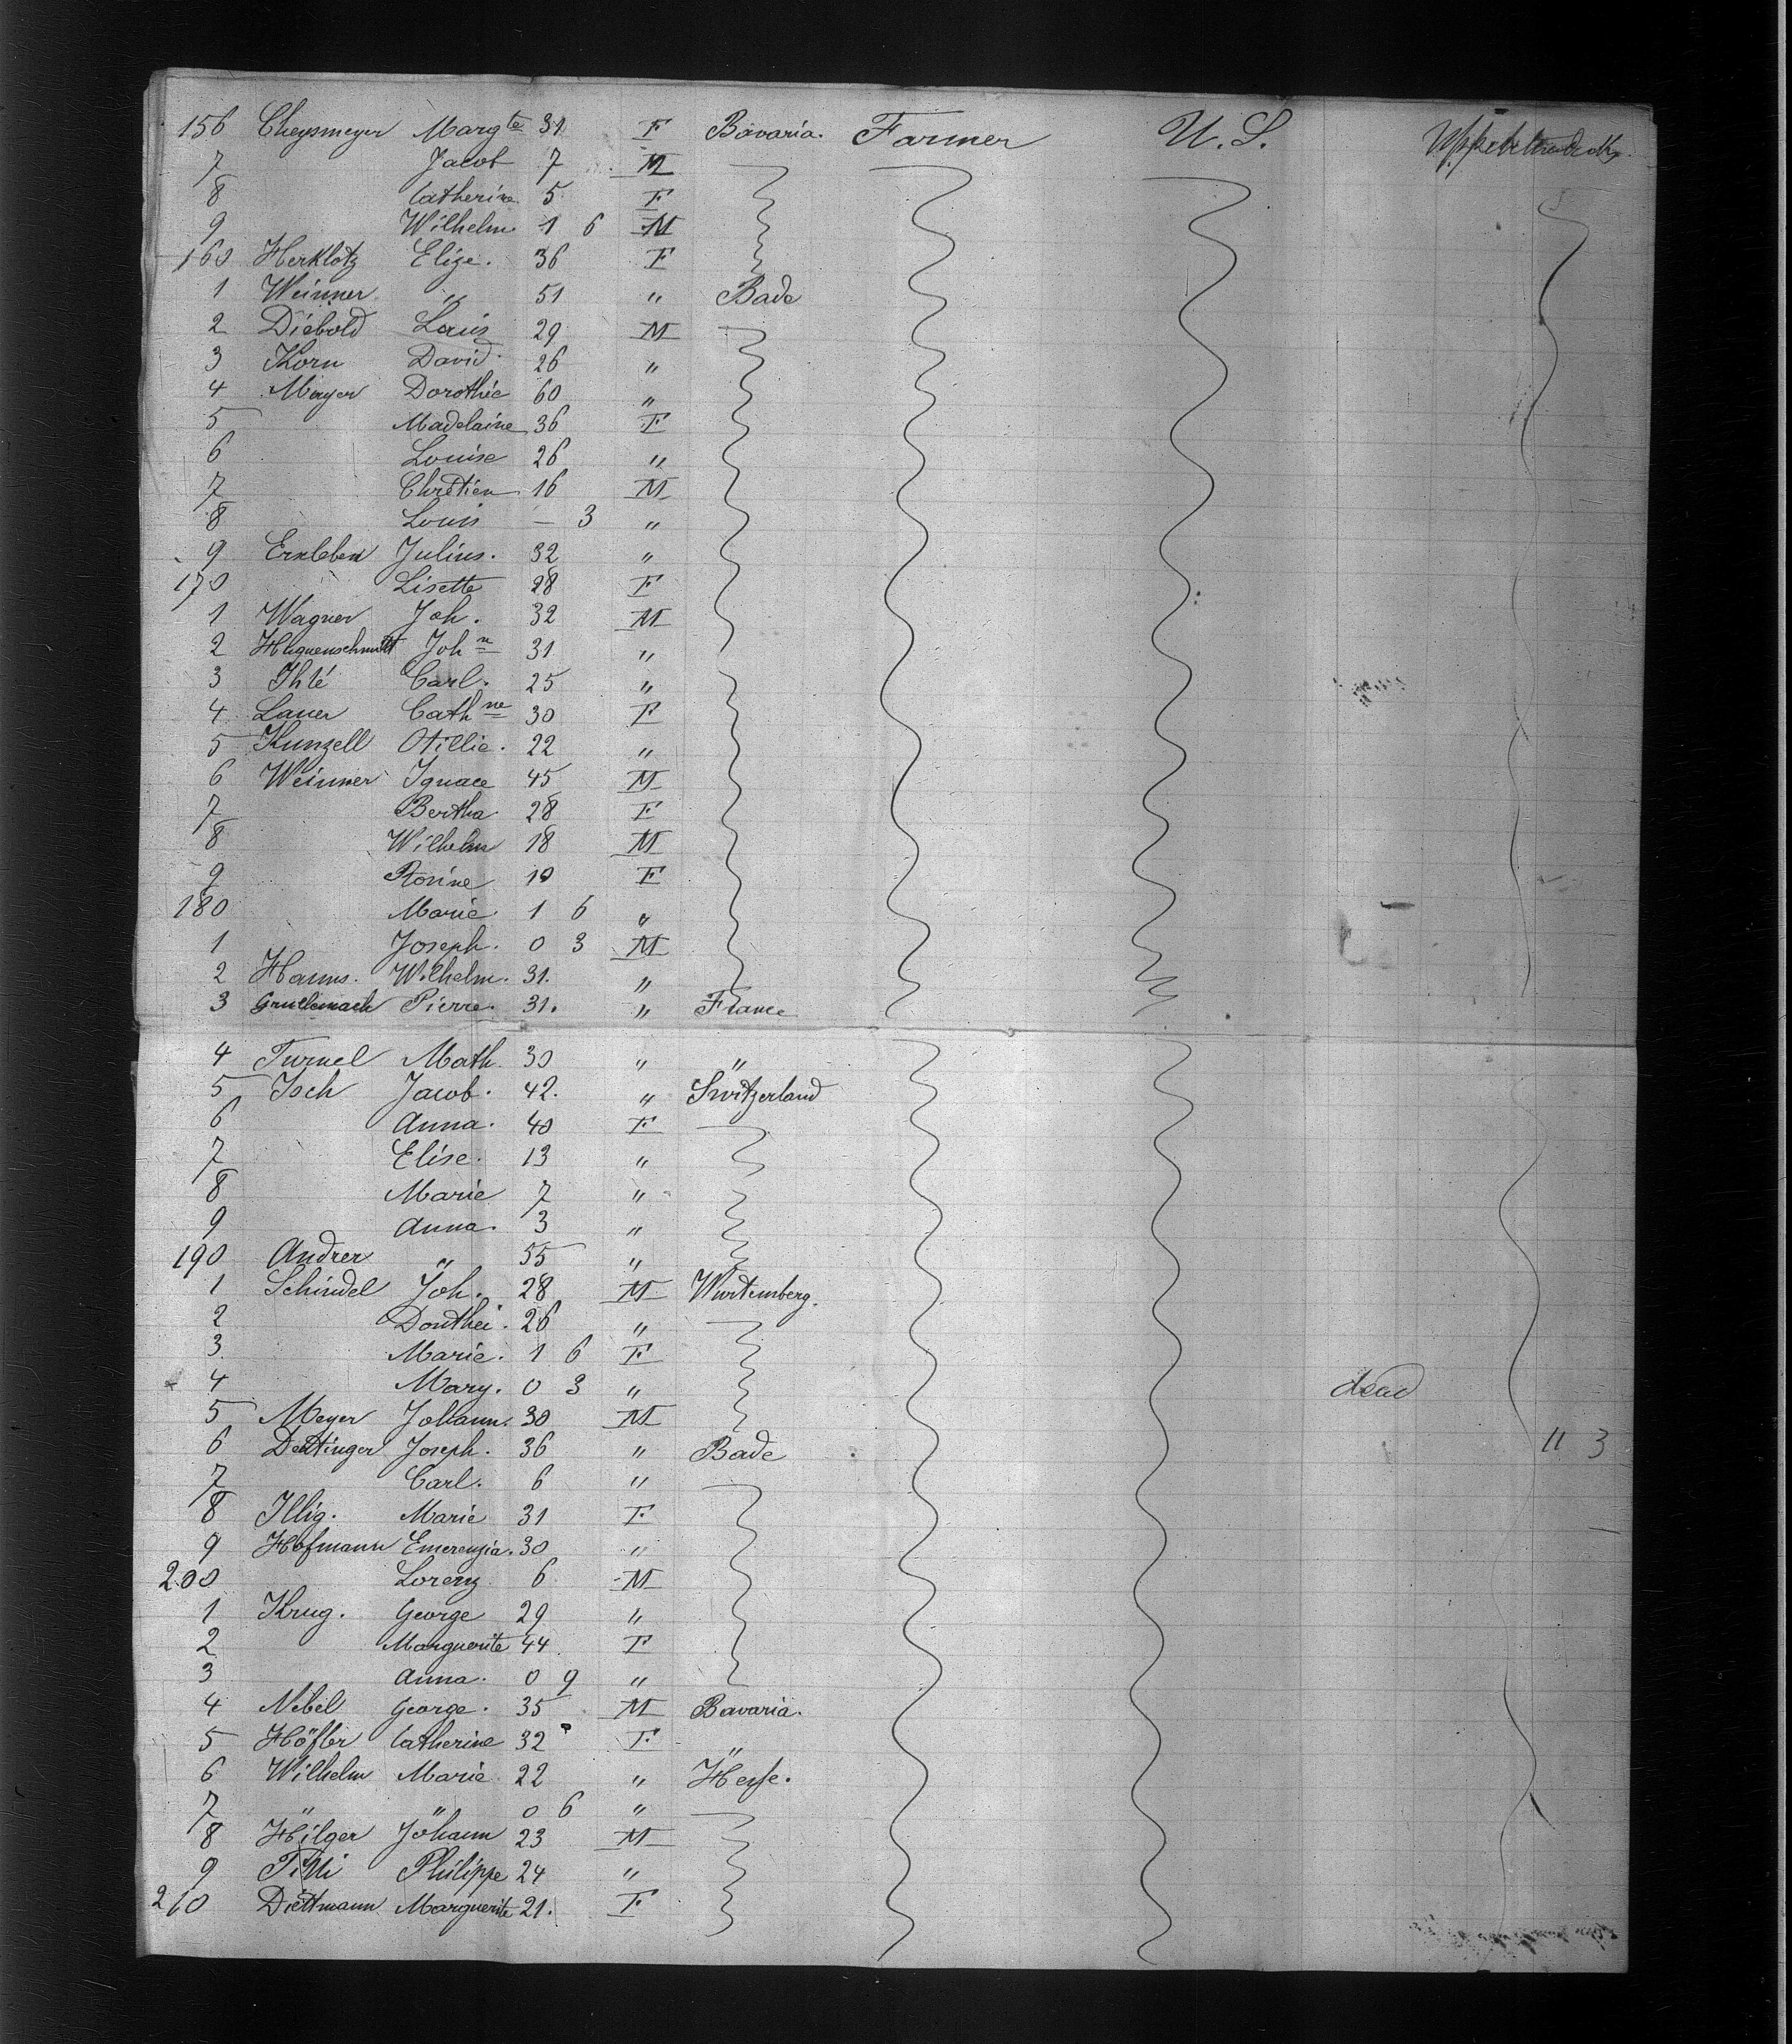 156 Cheysmeyer Margte 31 F Bavaria. Farmer U.S.
7 Jacob 7 M
8 Catherine 5 F
9 Wilhelm 1 6 M
160 Herklotz Elize. 36 F
1 Weinner " 51 " Bade
2 Diebold Louis 29 M
3 Korn David 26 "
4 Mayer Dorothée 60 "
5 Madelaine 36 F
6 Louise 26 "
7 Chrétien 16 M
8 Louis — 3 "
9 Erxleben Julius. 32 "
170 Lisette 28 F
1 Wagner Joh. 32 M
2 Huguenschmidt John 31 "
3 Ihlé Carl. 25 "
4 Lauer Cathne 30 F
5 Kunzell Otillie. 22 "
6 Weinner Ignace 45 M
7 Bertha 28 F
8 Wilhelm 18 M
9 Rosine 10 F
180 Marie 1 6 "
1 Joseph. 0 3 M
2 Hanns. Wilhelm. 31. "
3 Pierre. 31. " France
4 Turnel Math. 30 " "
5 Isch Jacob. 42. " Switzerland
6 Anna. 40 F
7 Elise. 13 "
8 Marie 7 "
9 Anna. 3 "
190 Andrer " 55 "
1 Schindel Joh. 28 M Wurtemberg.
2 Dorthei. 26 "
3 Marie. 1 6 F
4 Mary. 0 3 " dead
5 Meyer Johann. 30 M
6 Dettinger Joseph. 36 " Bade 11 3
7 Carl. 6 "
8 Illig. Marie 31 F
9 Hofmann Emerenzia. 30 "
200 Lorenz 6 M
1 Krug. George 29 "
2 Marguerite 44 F
3 Anna. 0 9 "
4 Nebel George. 35 M Bavaria.
5 Höfler Catherine 32 F "
6 Wilhelm Marie 22 " Hesse.
7 " " 0 6 "
8 Hilger Johann 23 M
9 Philippe 24 "
210 Diettmann Marguerite 21. F